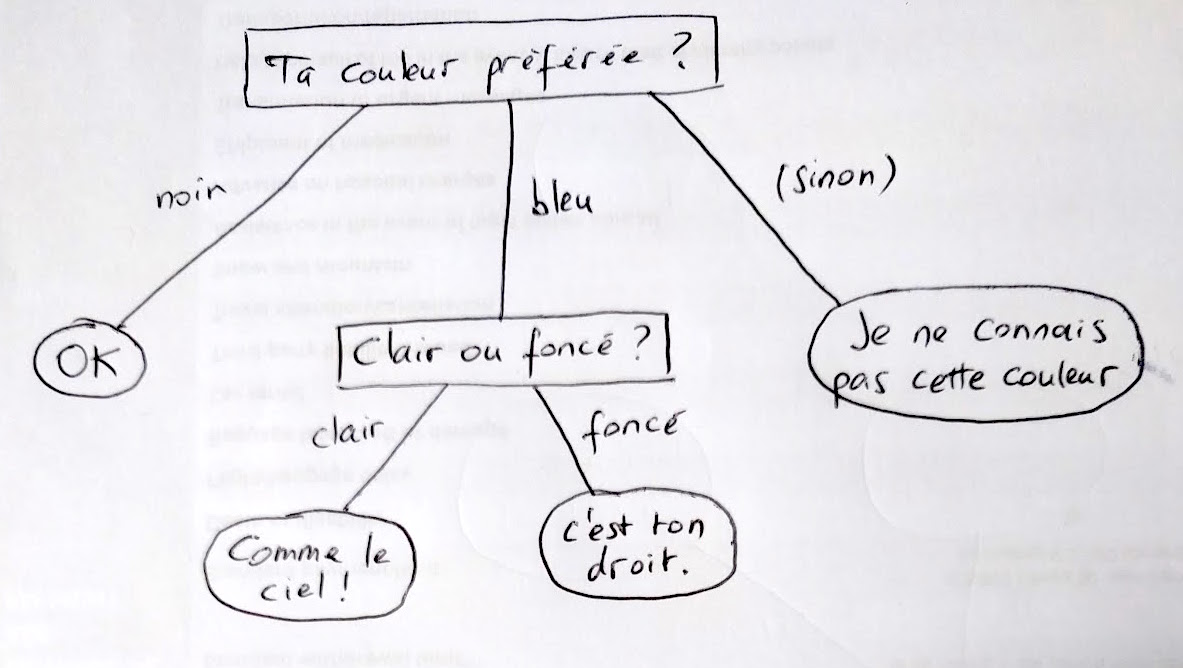 Ta couleur préférée ?
noir
bleu
(sinon)
OK
Clair ou foncé ?
Je ne connais
pas cette couleur
clair
foncé
Comme le
ciel !
c'est ton
droit.